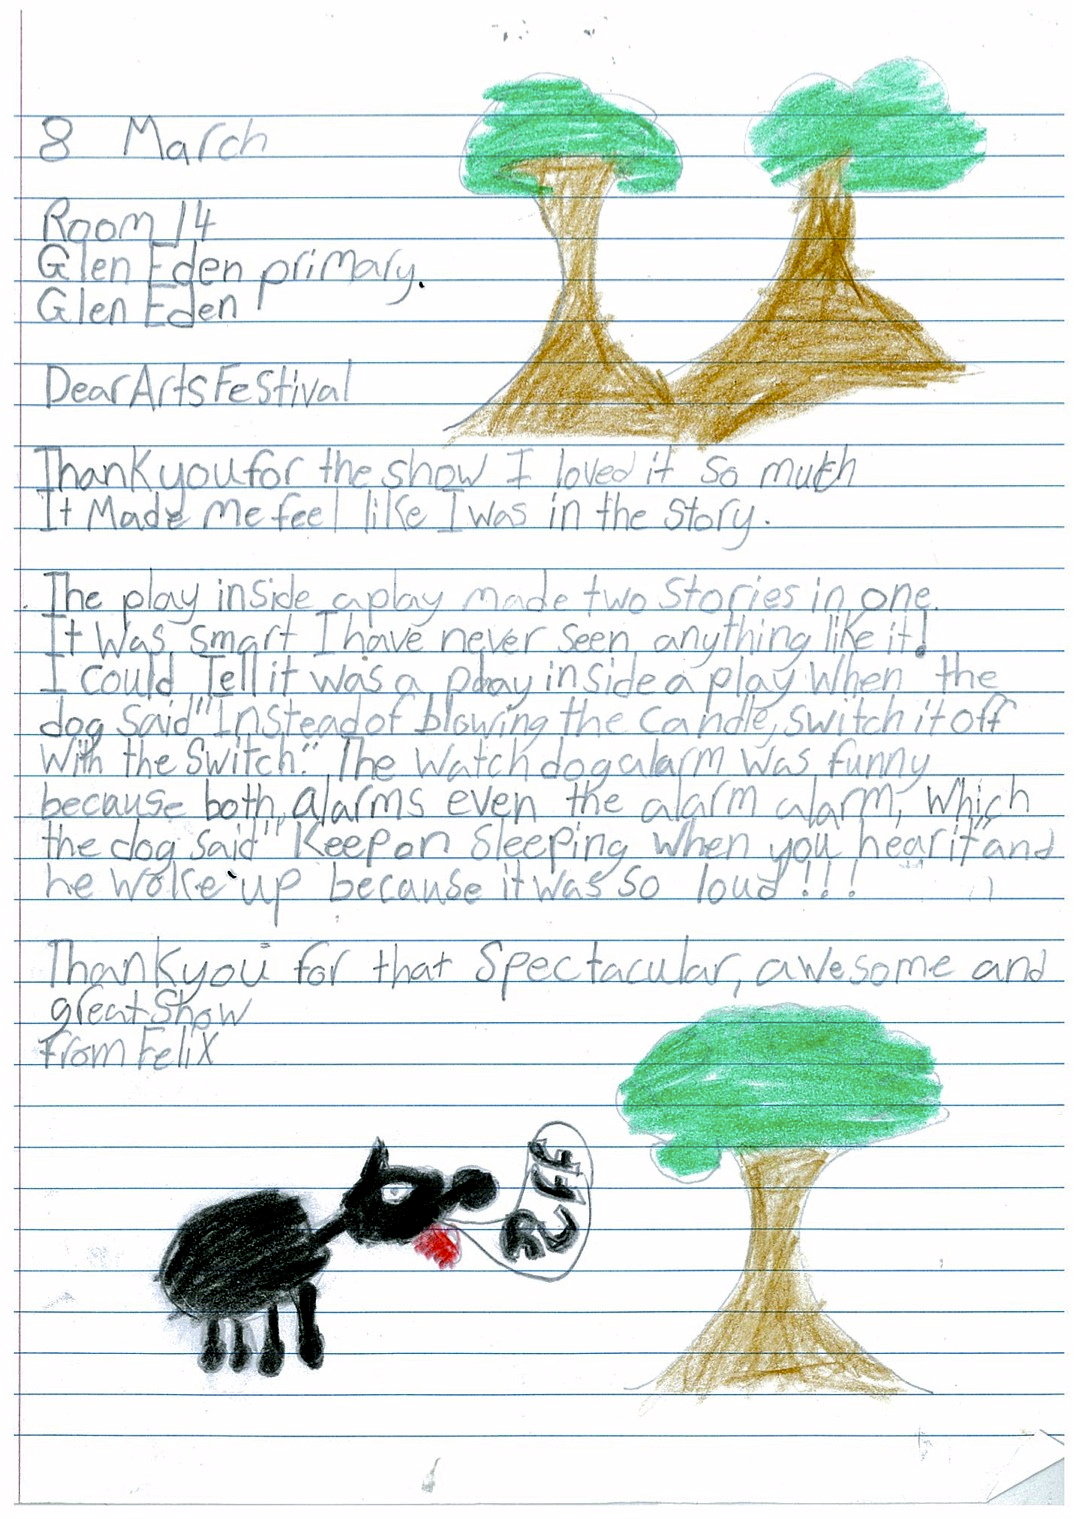 8 March
Room 14
Glen Eden primary.
Glen Eden
Dear Arts Festival
Thank you for the show I loved it so much
It Made me feel like I was in the Story.
The play inside a play made two Stories in one.
It Was Smart I have never seen anything like it!
I could Tell it was a play inside a play When the
dog Said "Instead of blowing the candle, switch it off
With the Switch." The Watch dog alarm was funny
because both alarms even the alarm alarm, which
the dog said "Keep on Sleeping when you hear it" and
he woke up because it was so loud!!!
Thank you for that Spectacular, awesome and
great Show
From Felix
Ruff